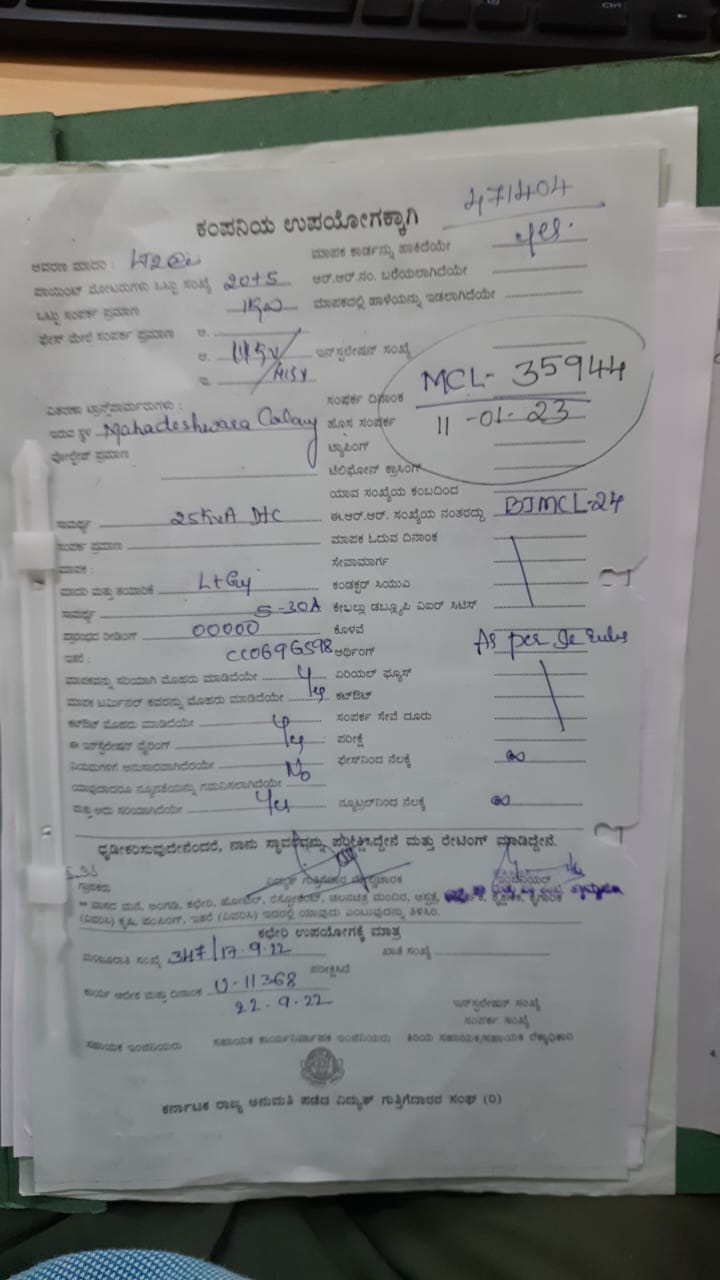 Ctrl
471404
ಕಂಪನಿಯ ಉಪಯೋಗಕ್ಕಾಗಿ
ಮಾಪಕ ಕಾರ್ಡನ್ನು ಹಾಕಿದೆಯೇ yes.
ಪಾಯಿಂಟ್ ಮೋಟರುಗಳು ಒಟ್ಟು ಸಂಖ್ಯೆ 20+5 ಆರ್.ಆರ್.ನಂ. ಬರೆಯಲಾಗಿದೆಯೇ
ಒಟ್ಟು ಸಂಪರ್ಕ ಪ್ರಮಾಣ 1KW ಮಾಪಕದಲ್ಲಿ ಹಾಳೆಯನ್ನು ಇಡಲಾಗಿದೆಯೇ
ಫೇಸ್ ಮೇಲೆ ಸಂಪರ್ಕ ಪ್ರಮಾಣ ಅ.
ಆ. ಇನ್‌ಸ್ಟಲೇಷನ್ ಸಂಖ್ಯೆ
ಇ.
MCL- 35944
ವಿತರಣಾ ಟ್ರಾನ್ಸ್‌ಫಾರ್ಮರುಗಳು : ಸಂಪರ್ಕ ದಿನಾಂಕ
ಇರುವ ಸ್ಥಳ Mahadeshwara Colony ಹೊಸ ಸಂಪರ್ಕ 11-01-23
ವೋಲ್ಟೇಜ್ ಪ್ರಮಾಣ ಟ್ಯಾಪಿಂಗ್
ಟೆಲಿಫೋನ್ ಕ್ರಾಸಿಂಗ್
ಯಾವ ಸಂಖ್ಯೆಯ ಕಂಬದಿಂದ
ಸಾಮರ್ಥ್ಯ 25KVA ಈ.ಆರ್.ಆರ್. ಸಂಖ್ಯೆಯ ನಂತರದ್ದು BJMCL-24
ಸಂಪರ್ಕ ಪ್ರಮಾಣ ಮಾಪಕ ಓದುವ ದಿನಾಂಕ
ಮಾಪಕ : ಸೇವಾಮಾರ್ಗ
ಮಾದರಿ ಮತ್ತು ತಯಾರಿಕೆ ಕಂಡಕ್ಟರ್ ಸಿಯುಎ
ಸಾಮರ್ಥ್ಯ 5-30A ಕೇಬಲ್ಲು ಡಬ್ಲ್ಯೂಪಿ ಎಐಆರ್ ಸಿಟಿಸ್
ಪ್ರಾರಂಭದ ರೀಡಿಂಗ್ 00000 ಕೊಳವೆ
ಇತರೆ : CC0696598 ಅರ್ಥಿಂಗ್ As per Ie rules
ಮಾಪಕವನ್ನು ಸರಿಯಾಗಿ ಮೊಹರು ಮಾಡಿದೆಯೇ ಏರಿಯಲ್ ಫ್ಯೂಸ್
ಮಾಪಕ ಟರ್ಮಿನಲ್ ಕವರನ್ನು ಮೊಹರು ಮಾಡಿದೆಯೇ ಕಟ್‌ಔಟ್
ಕಟ್‌ಔಟ್ ಮೊಹರು ಮಾಡಿದೆಯೇ ಸಂಪರ್ಕ ಸೇವೆ ದೂರು
ಈ ಇನ್‌ಸ್ಟಲೇಷನ್ ವೈರಿಂಗ್ Yes ಪರೀಕ್ಷೆ
ನಿಯಮಗಳಿಗೆ ಅನುಸಾರವಾಗಿದೆಯೇ No ಫೇಸ್‌ನಿಂದ ನೆಲಕ್ಕೆ ∞
ಯಾವುದಾದರೂ ನ್ಯೂನತೆಯನ್ನು ಗಮನಿಸಲಾಗಿದೆಯೇ
ಮತ್ತು ಅದು ಸರಿಯಾಗಿದೆಯೇ Yes ನ್ಯೂಟ್ರಲ್‌ನಿಂದ ನೆಲಕ್ಕೆ ∞
ಧೃಡೀಕರಿಸುವುದೇನೆಂದರೆ, ನಾನು ಸ್ಥಾವರವನ್ನು ಪರೀಕ್ಷಿಸಿದ್ದೇನೆ ಮತ್ತು ರೇಟಿಂಗ್ ಮಾಡಿದ್ದೇನೆ.
ಗ್ರಾಹಕರು ವಿದ್ಯುತ್ ಗುತ್ತಿಗೆದಾರ
** ವಾಸದ ಮನೆ, ಅಂಗಡಿ, ಕಛೇರಿ, ಹೋಟೆಲ್, ರೆಸ್ಟೋರೆಂಟ್, ಚಲನಚಿತ್ರ ಮಂದಿರ, ಆಸ್ಪತ್ರೆ,
(ವಿವರಿಸಿ) ಕೃಷಿ, ಪಂಪಿಂಗ್, ಇತರೆ (ವಿವರಿಸಿ) ಇದರಲ್ಲಿ ಯಾವುದು ಎಂಬುವುದನ್ನು ತಿಳಿಸಿ.
ಕಛೇರಿ ಉಪಯೋಗಕ್ಕೆ ಮಾತ್ರ
ಮಂಜೂರಾತಿ ಸಂಖ್ಯೆ 347/17.9.22 ಖಾತೆ ಸಂಖ್ಯೆ
ಪರೀಕ್ಷಿಸಿದೆ
ಕಾರ್ಯ ಆದೇಶ ಮತ್ತು ದಿನಾಂಕ U-11368
22.9.22 ಇನ್‌ಸ್ಟಲೇಷನ್ ಸಂಖ್ಯೆ
ಸಂಪರ್ಕ ಸಂಖ್ಯೆ
ಸಹಾಯಕ ಇಂಜಿನಿಯರು ಸಹಾಯಕ ಕಾರ್ಯನಿರ್ವಾಹಕ ಇಂಜಿನಿಯರು ಕಿರಿಯ ಸಹಾಯಕ/ಸಹಾಯಕ ಲೆಕ್ಕಾಧಿಕಾರಿ
ಕರ್ನಾಟಕ ರಾಜ್ಯ ಅನುಮತಿ ಪಡೆದ ವಿದ್ಯುತ್ ಗುತ್ತಿಗೆದಾರರ ಸಂಘ (ರಿ)